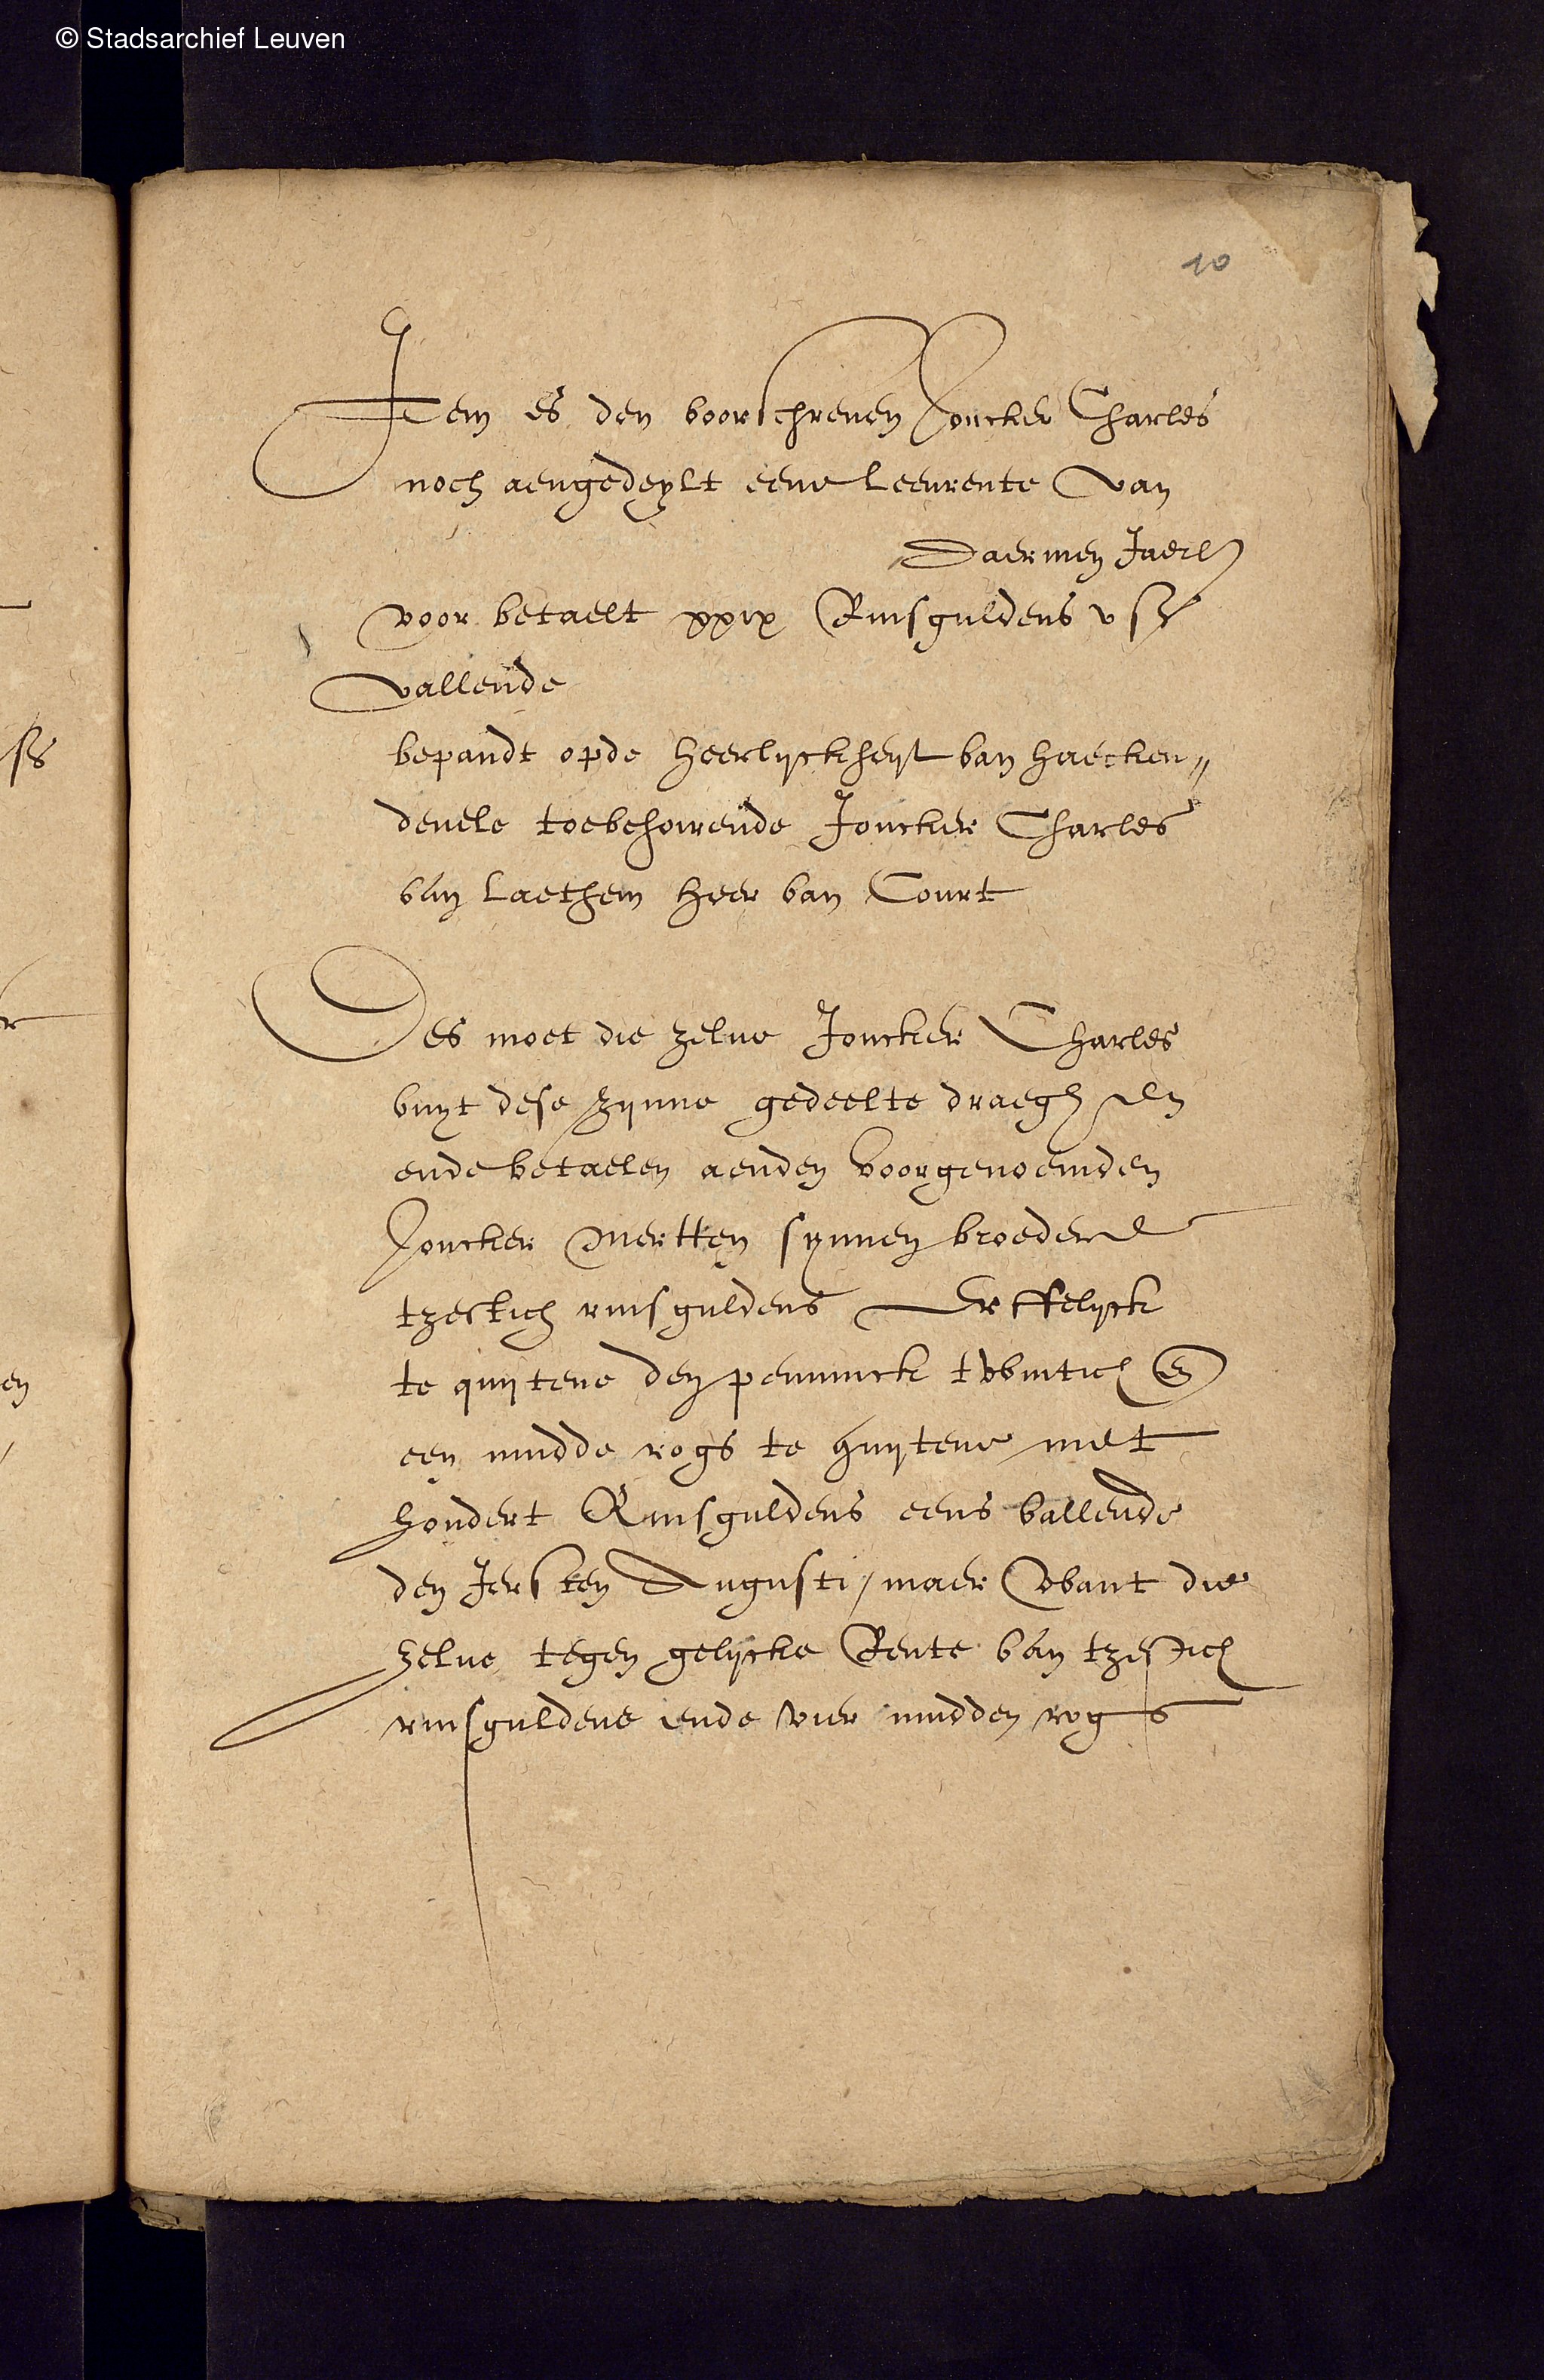 © Stadsarchief Leuven
10
Item es den voorschreven Joncker Charles
noch aengedeylt eene leenrente van
Daermen Jaerl
voor betaelt xxix Rinsguldens v st
vallende
bepandt opde heerlyckheyt van haecken„
devele toebehoirende Jonckier Charles
van Laethem heer van Court
Des moet die zelve Jonckier Charles
vuyt dese zynne gedeelte draeghen
ende betaelen aenden voorgenoemden
Joncker Mertten synnen broedere
tzestich rinsguldens Erffelyck
te quytene den penninck twintich en
een mudde rogs te quytene met
hondert Rinsguldens eens vallende
den Iersten Augusti / maer want die
zelve tegen gelycke Rente van tzestich
rinsguldens ende vier mudden rogs